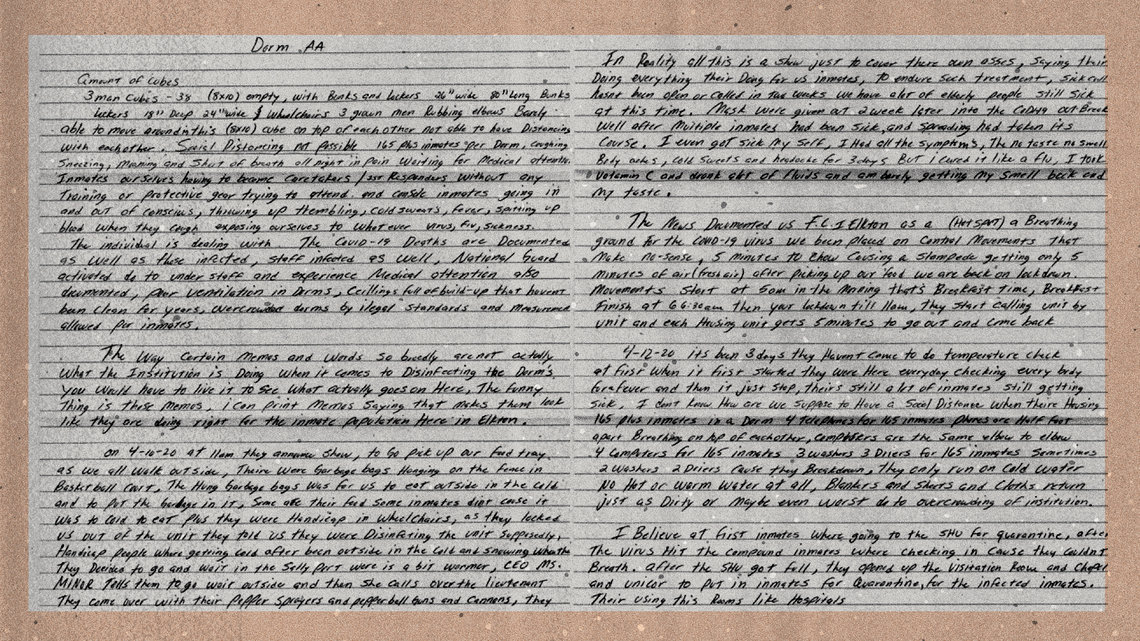 Dorm AA
Amount of Cubes
3 man Cubes - 38 (8x10) empty, with Bunks and Lockers 26" wide 80" Long Bunks
Lockers 18" Deep 24" wide & Wheelchairs 3 grown men Rubbing elbows Barly
able to move around in this (8x10) cube on top of each other not able to have Distencing
with each other. Social Distoncing not possible 165 plus inmates per Dorm, Coughing
Sneezing, Moaning and Short of breath all night in pain Waiting for Medical attention.
Inmates ourselves having to become Caretakers / 1st Responders without any
Training or protective gear trying to attend and console inmates going in
and out of conscious, throwing up thembling, cold sweats, fever, spitting up
blood when they cough exposing ourselves to Whatever virus, flu, sickness.
The individual is dealing with The Covid-19 Deaths are Documented
as Well as those infected, staff infected as Well, National Guard
activated do to under staff and experience Medical attention also
documented, poor ventilation in Dorms, Ceillings full of build-up that havent
been Clean for years, overcrowded dorms by ilegal standards and measurement
allowed per inmates.
The Way Certain Memos and words so broadly are not actually
What the Institution is Doing when it comes to Disinfecting the Dorm's
you would have to live it to see what actually goes on Here, The funny
thing is these Memos, i can print Memos Saying that makes them look
like they are doing right for the inmate population Here in Elkton.
on 4-10-20 at 11am they announce Show, to Go pick up our food tray
as we all Walk outside, Theire Were Garbage bags Hanging on the Fence in
Basketball Court, The Hung Garbage bags was for us to eat outside in the Cold
and to put the Garbage in it, Some ate their food Some inmates dint cause it
was to cold to eat plus they were Handicap in WheelChairs, as they locked
us out of the unit they told us they were Disinfecting the unit Supposedly,
Handicap people where getting cold after been outside in the Cold and snowing
They Decided to go and wait in the Sally port were is a bit wormer, CEO MS.
MINOR Tells them to go wait outside and then she Calls over the lieutenant
They come over with their Pepper Sprayers and pepperball Guns and Cannons, they
In Reality all this is a Show just to cover there own asses, Saying their
Doing everything their Doing for us inmates, To endure Such treatment, Sick call
hasnt ben open or Called in two weeks we have alot of elderly people still Sick
at this time. Mask were given out 2 week later into the Covid19 out Break
Well after Multiple inmates had been Sick, and Spreading had taken its
Course. I even got Sick My Self, I Had all the Symptoms, The no taste no Smell
Body aches, Cold Sweats and headache for 3 days But i cured it like a flu, I took
Votamin C and drank alot of fluids and am barely getting my Smell back and
My taste.
The News Documented us F.C.I Elkton as a (Hot SPOT) a Breathing
ground for the COVID-19 virus We been placed on Control Movements that
Make no-sense, 5 minutes to Chow Causing a Stampede getting only 5
minutes of air (fresh air) after picking up our food we are back on lockdown.
Movements Start at 6am in the Morning that's Breakfast time, Breakfast
Finish at 6:30am then your lockdown till 11am, they start calling unit by
unit and each Housing unit gets 5 minutes to go out and come back
4-12-20 its been 3 days they Havent Come to do temperature check
at First When it first started they were Here everyday checking every body
forafever and then it just stop, their's still alot of inmates still getting
Sick, I dont know How are we Suppose to Have a Socal Distance when theire Housing
165 plus inmates in a Dorm 4 telephones for 165 inmates phones are Half foot
apart Breathing on top of each other, computers are the Same elbow to elbow
4 Computers for 165 inmates 3 washers 3 Driers for 165 inmates Sometimes
2 Washers 2 Driers Cause they Breakdown, They only run on Cold water
NO Hot or Warm Water at all, Blankets and Sheets and Cloths return
just as Dirty or Maybe even worst do to overcrowding of institution.
I Believe at First inmates where going to the SHU for quarantine, after
The virus Hit the Compound inmates where checking in Cause they Couldn't
Breath. after the SHU got full, they opened up the Visitation Room and Chapel
and unicor to put in inmates for Quarantine, for the infected inmates.
Their using this Rooms like Hospitals